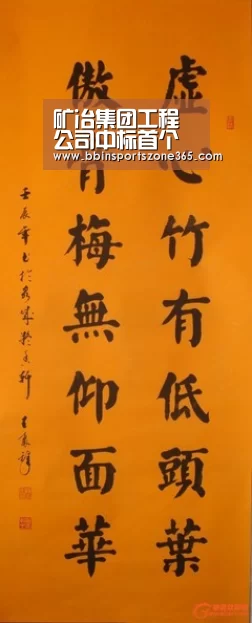 虛心竹有低頭葉
傲骨梅無仰面華
壬辰年
矿冶集团工程
公司中标首个
www.bbinsportszone365.com